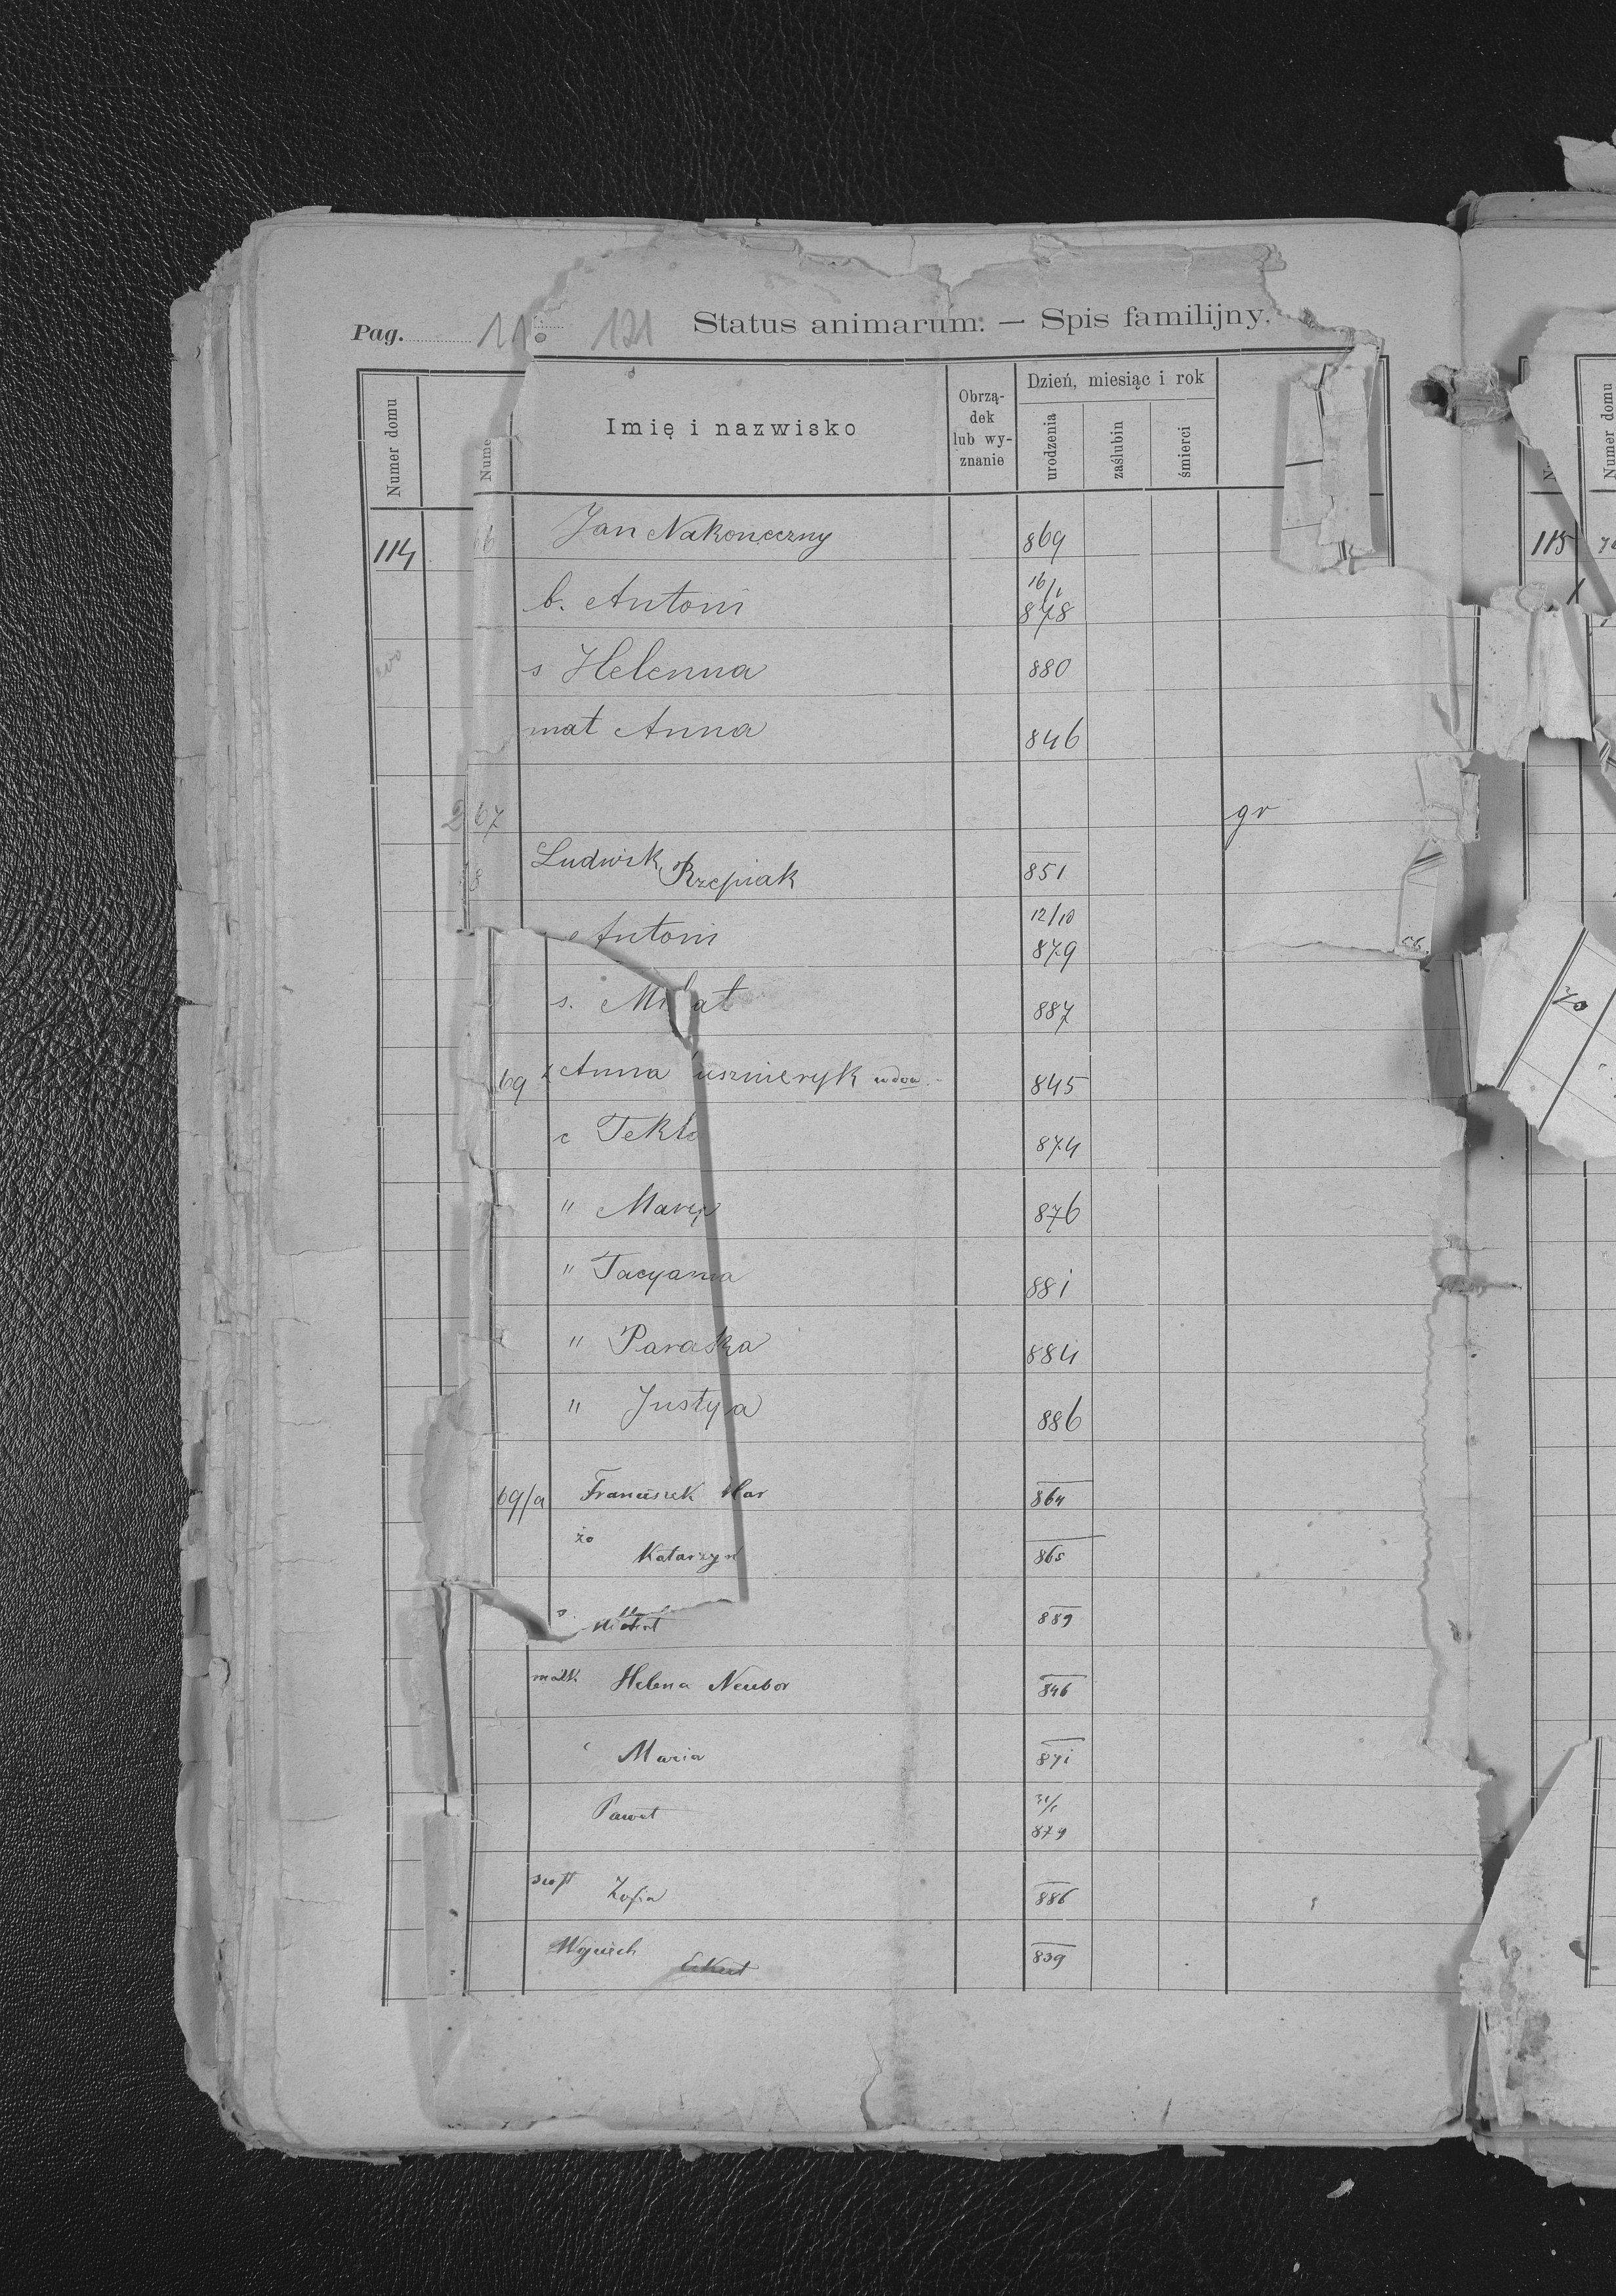 Pag. 11 121 Status animarum. — Spis familijny.
Numer domu
Nume
Imię i nazwisko
Obrządek lub wyznanie
Dzień, miesiąc i rok
urodzenia
zaślubin
śmierci
114 66 Jan Nakoneczny 869
b. Antoni 16/1 878
s Helenna 880
mat Anna 846
2 67 gr
Ludwik Rzepiak 851
Antoni 12/10 879
s. Mi at 887
69 Anna uszneryk wdow. 845
c Tekla 874
" Marya 876
" Tacyanna 881
" Paraska 884
" Justy a 886
69/a Franciszek 864
żo Katarzyn 865
s. Michał 889
matk Helena Neubor 846
Maria 871
Paweł 879
siost Zofia 886
Wojciech 839
115
70
Numer domu